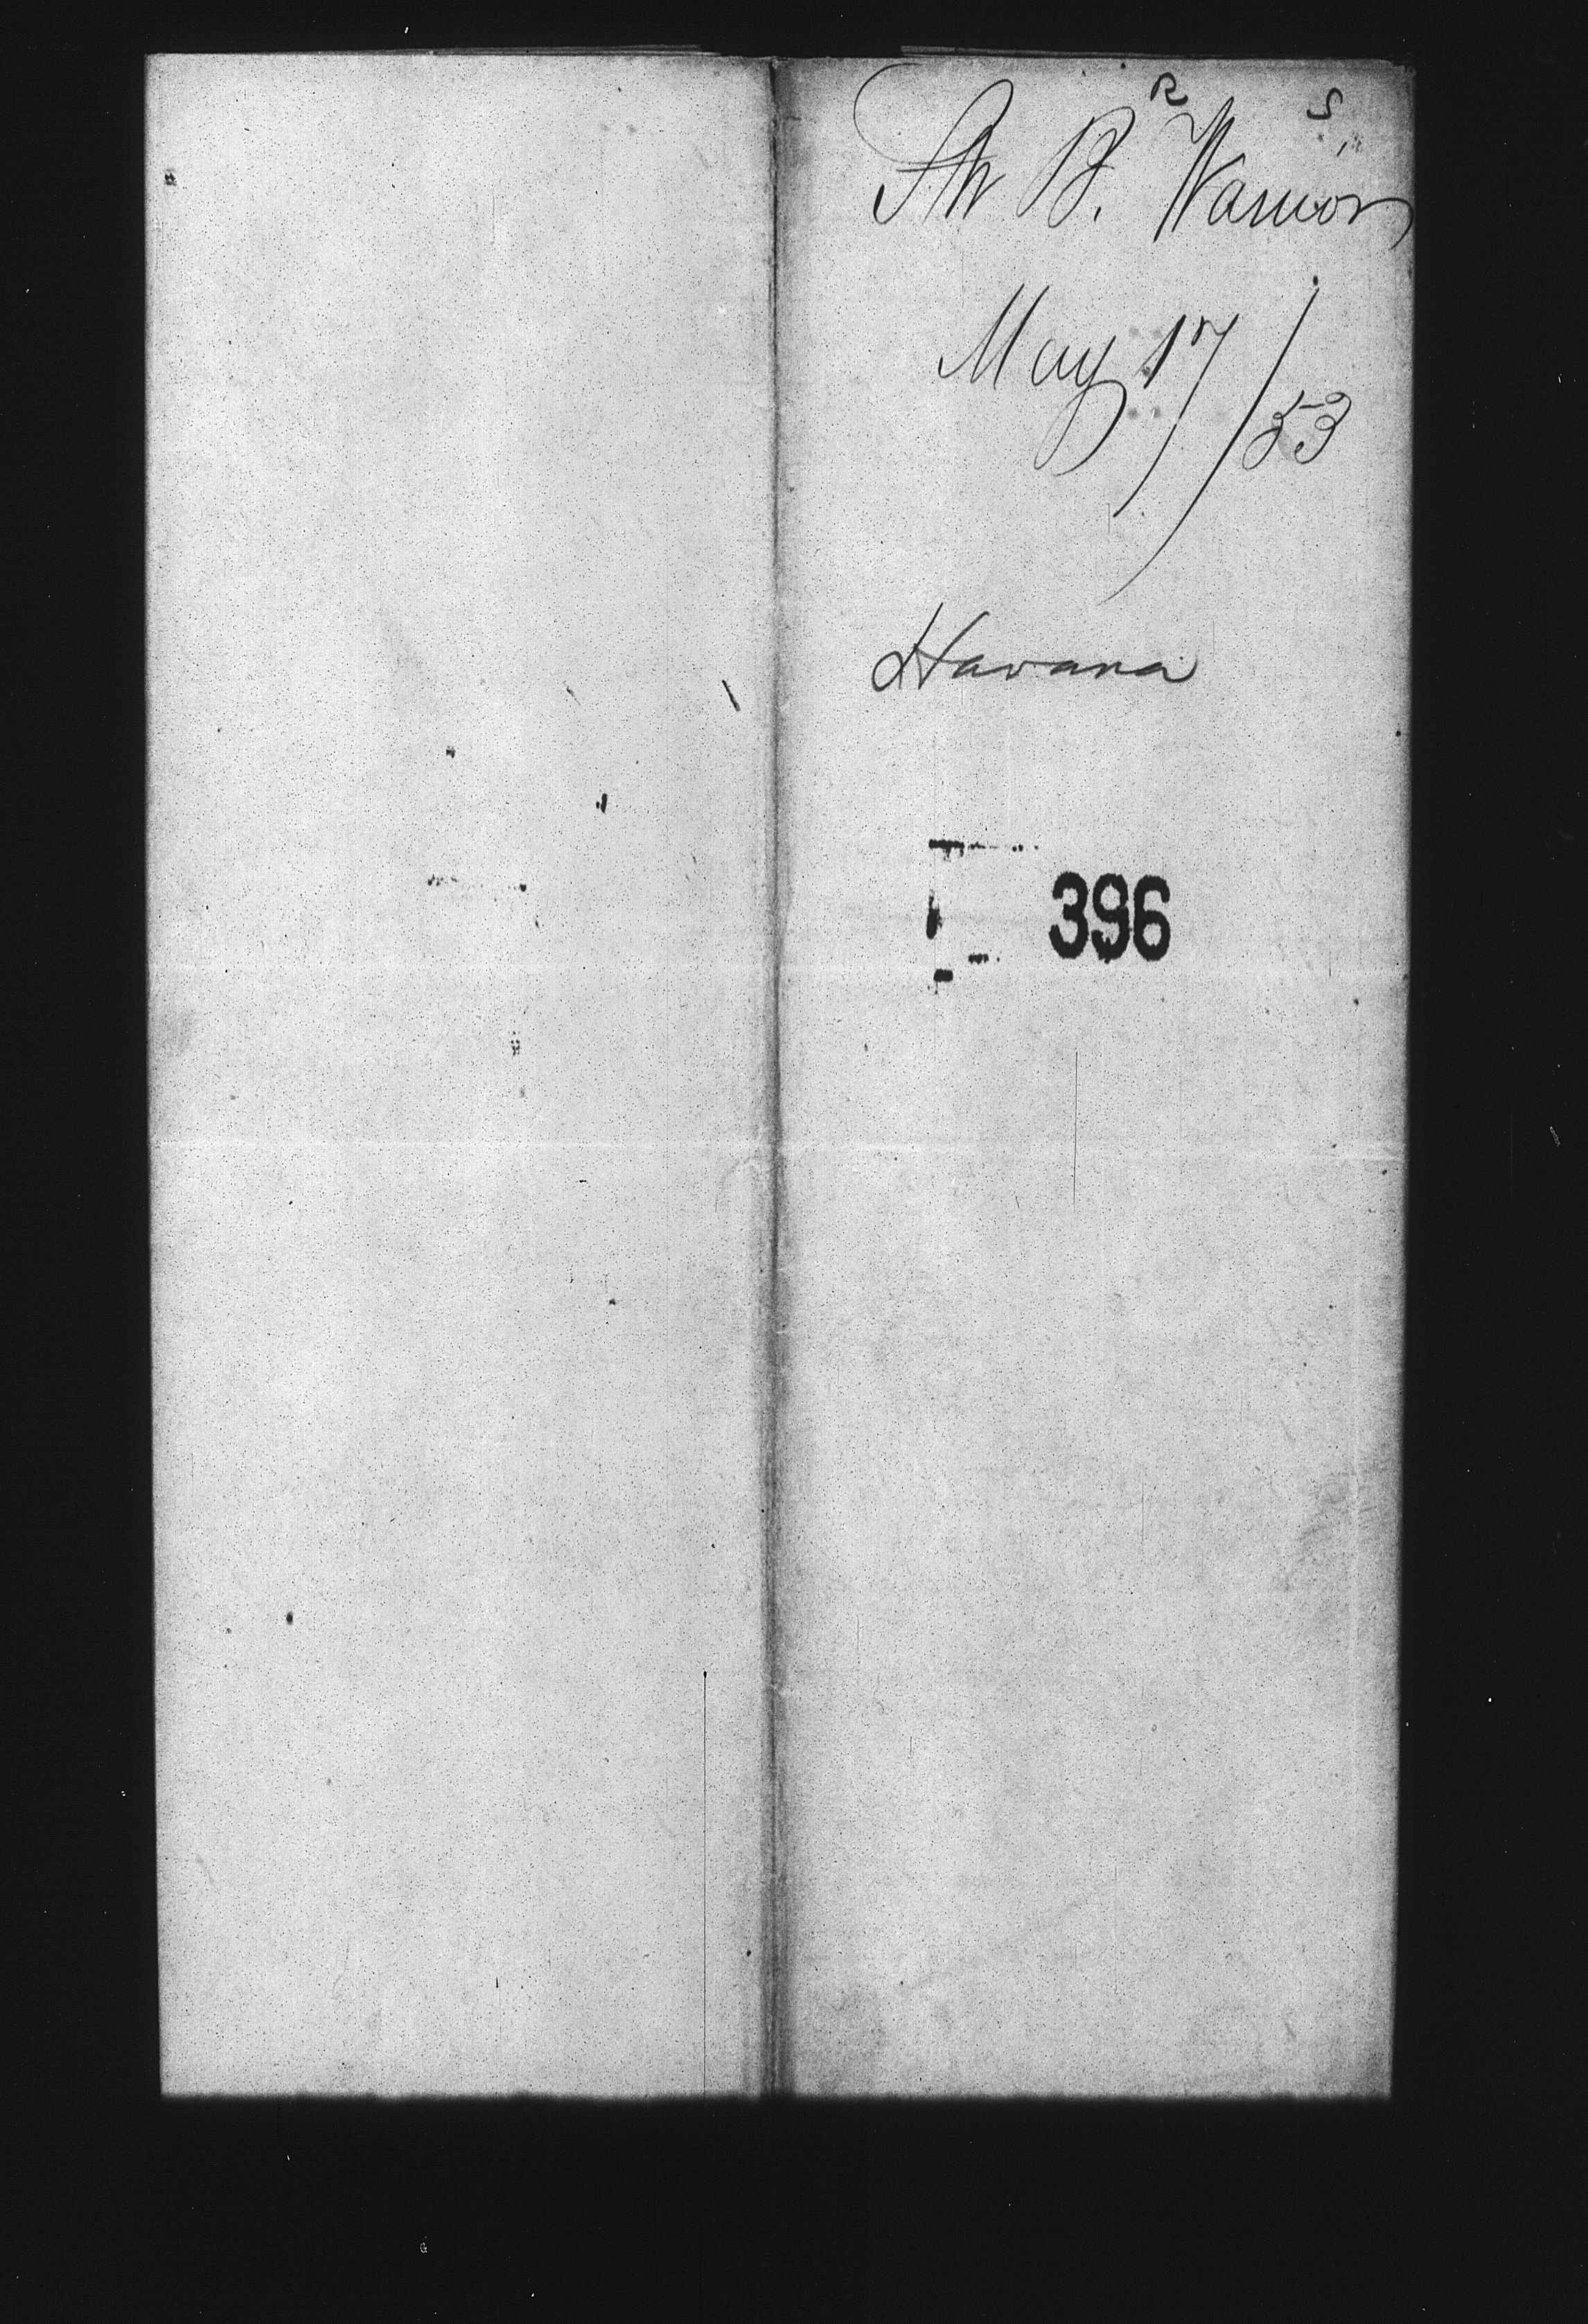 R S
Str B. Warrior
May 17/53
Havana
396